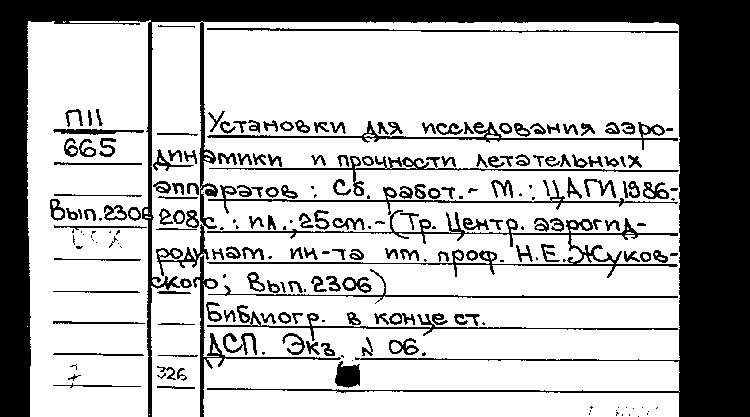 П11
665
Установки для исследования аэро-
динамики и прочности летательных
аппаратов : Сб. работ.- М.: ЦАГИ,1986.-
Вып.2306
208с. : ил.; 25cm.- (Тр. Центр. аэрогид-
родинам. ин-та им. проф. Н.Е.Жуков-
ского; Вып.2306)
Библиогр. в конце ст.
ДСП. Экз. N 06.
7
326